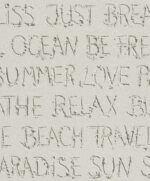 BLISS JUST BREA
L OCEAN BE FRE
SUMMER LOVE P
ATHE RELAX BL
E BEACH TRAVEL
PARADISE SUN S